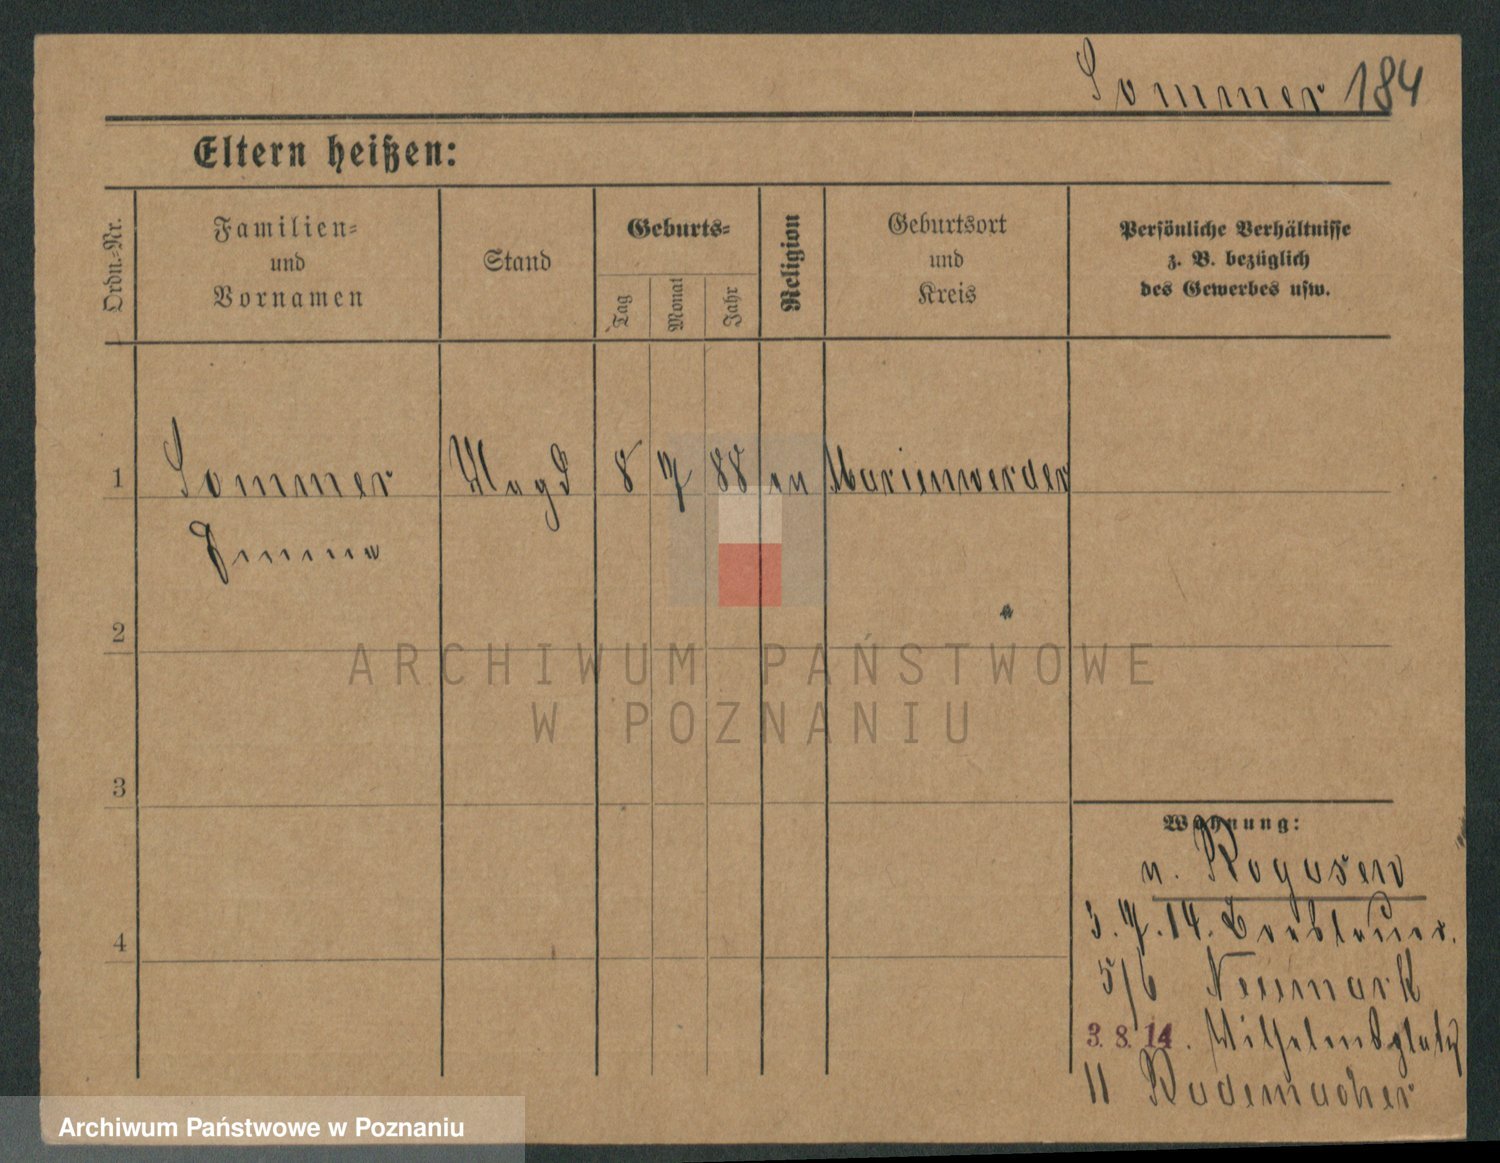 Sommer 184
Eltern heißen:
Ordn.-Nr.
Familien-
und
Vornamen
Stand
Geburts-
Tag
Monat
Jahr
Religion
Geburtsort
und
Kreis
Persönliche Verhältnisse
z. B. bezüglich
des Gewerbes usw.
1 Sommer Magd 8 7 88 ev Marienwerder
Emma
2
ARCHIWUM PAŃSTWOWE
W POZNANIU
3
Wohnung:
n. Rogasen
3.7.14.
5/6 Neumark
3. 8. 14. Wilhelmsplatz
11 Rademacher
4
Archiwum Państwowe w Poznaniu